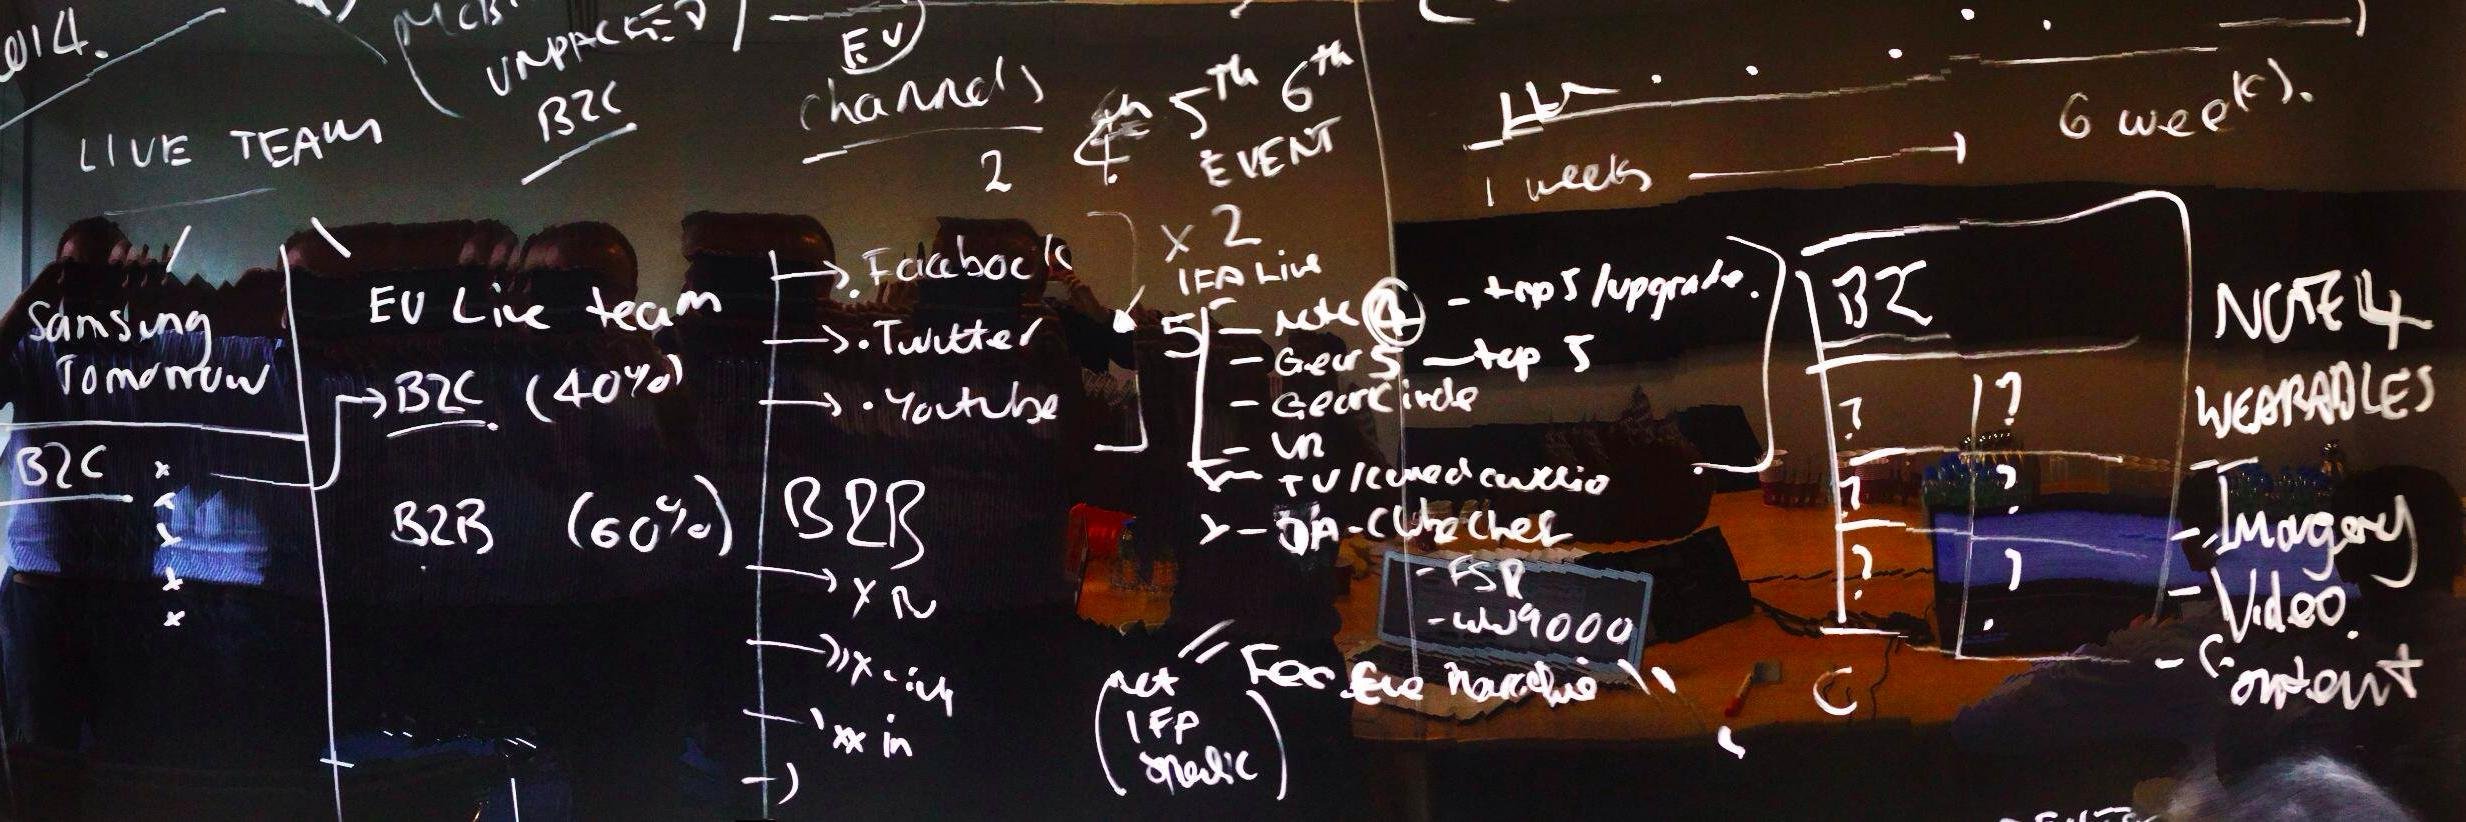 2014.
UNPACKED
B2C
LIVE TEAM
Samsung
Tomorrow
B2C
EU Live team
B2C (40%)
B2B (60%)
EU
channels
2
Facebook
Twitter
Youtube
B2B
in
4th 5th 6th
EVENT
x 2
IFA Live
5
- Note 4 - top 5/upgrade.
- Gear S - top 5
- Gear Circle
- VR
- TV/curved audio
- DA - Club Chef
- FSR
- WW9000
(not
IFA
1 weeks
6 weeks.
B2C
? ?
? ?
? ?
C
NOTE 4
WEARABLES
- Imagery
- Video.
- Content